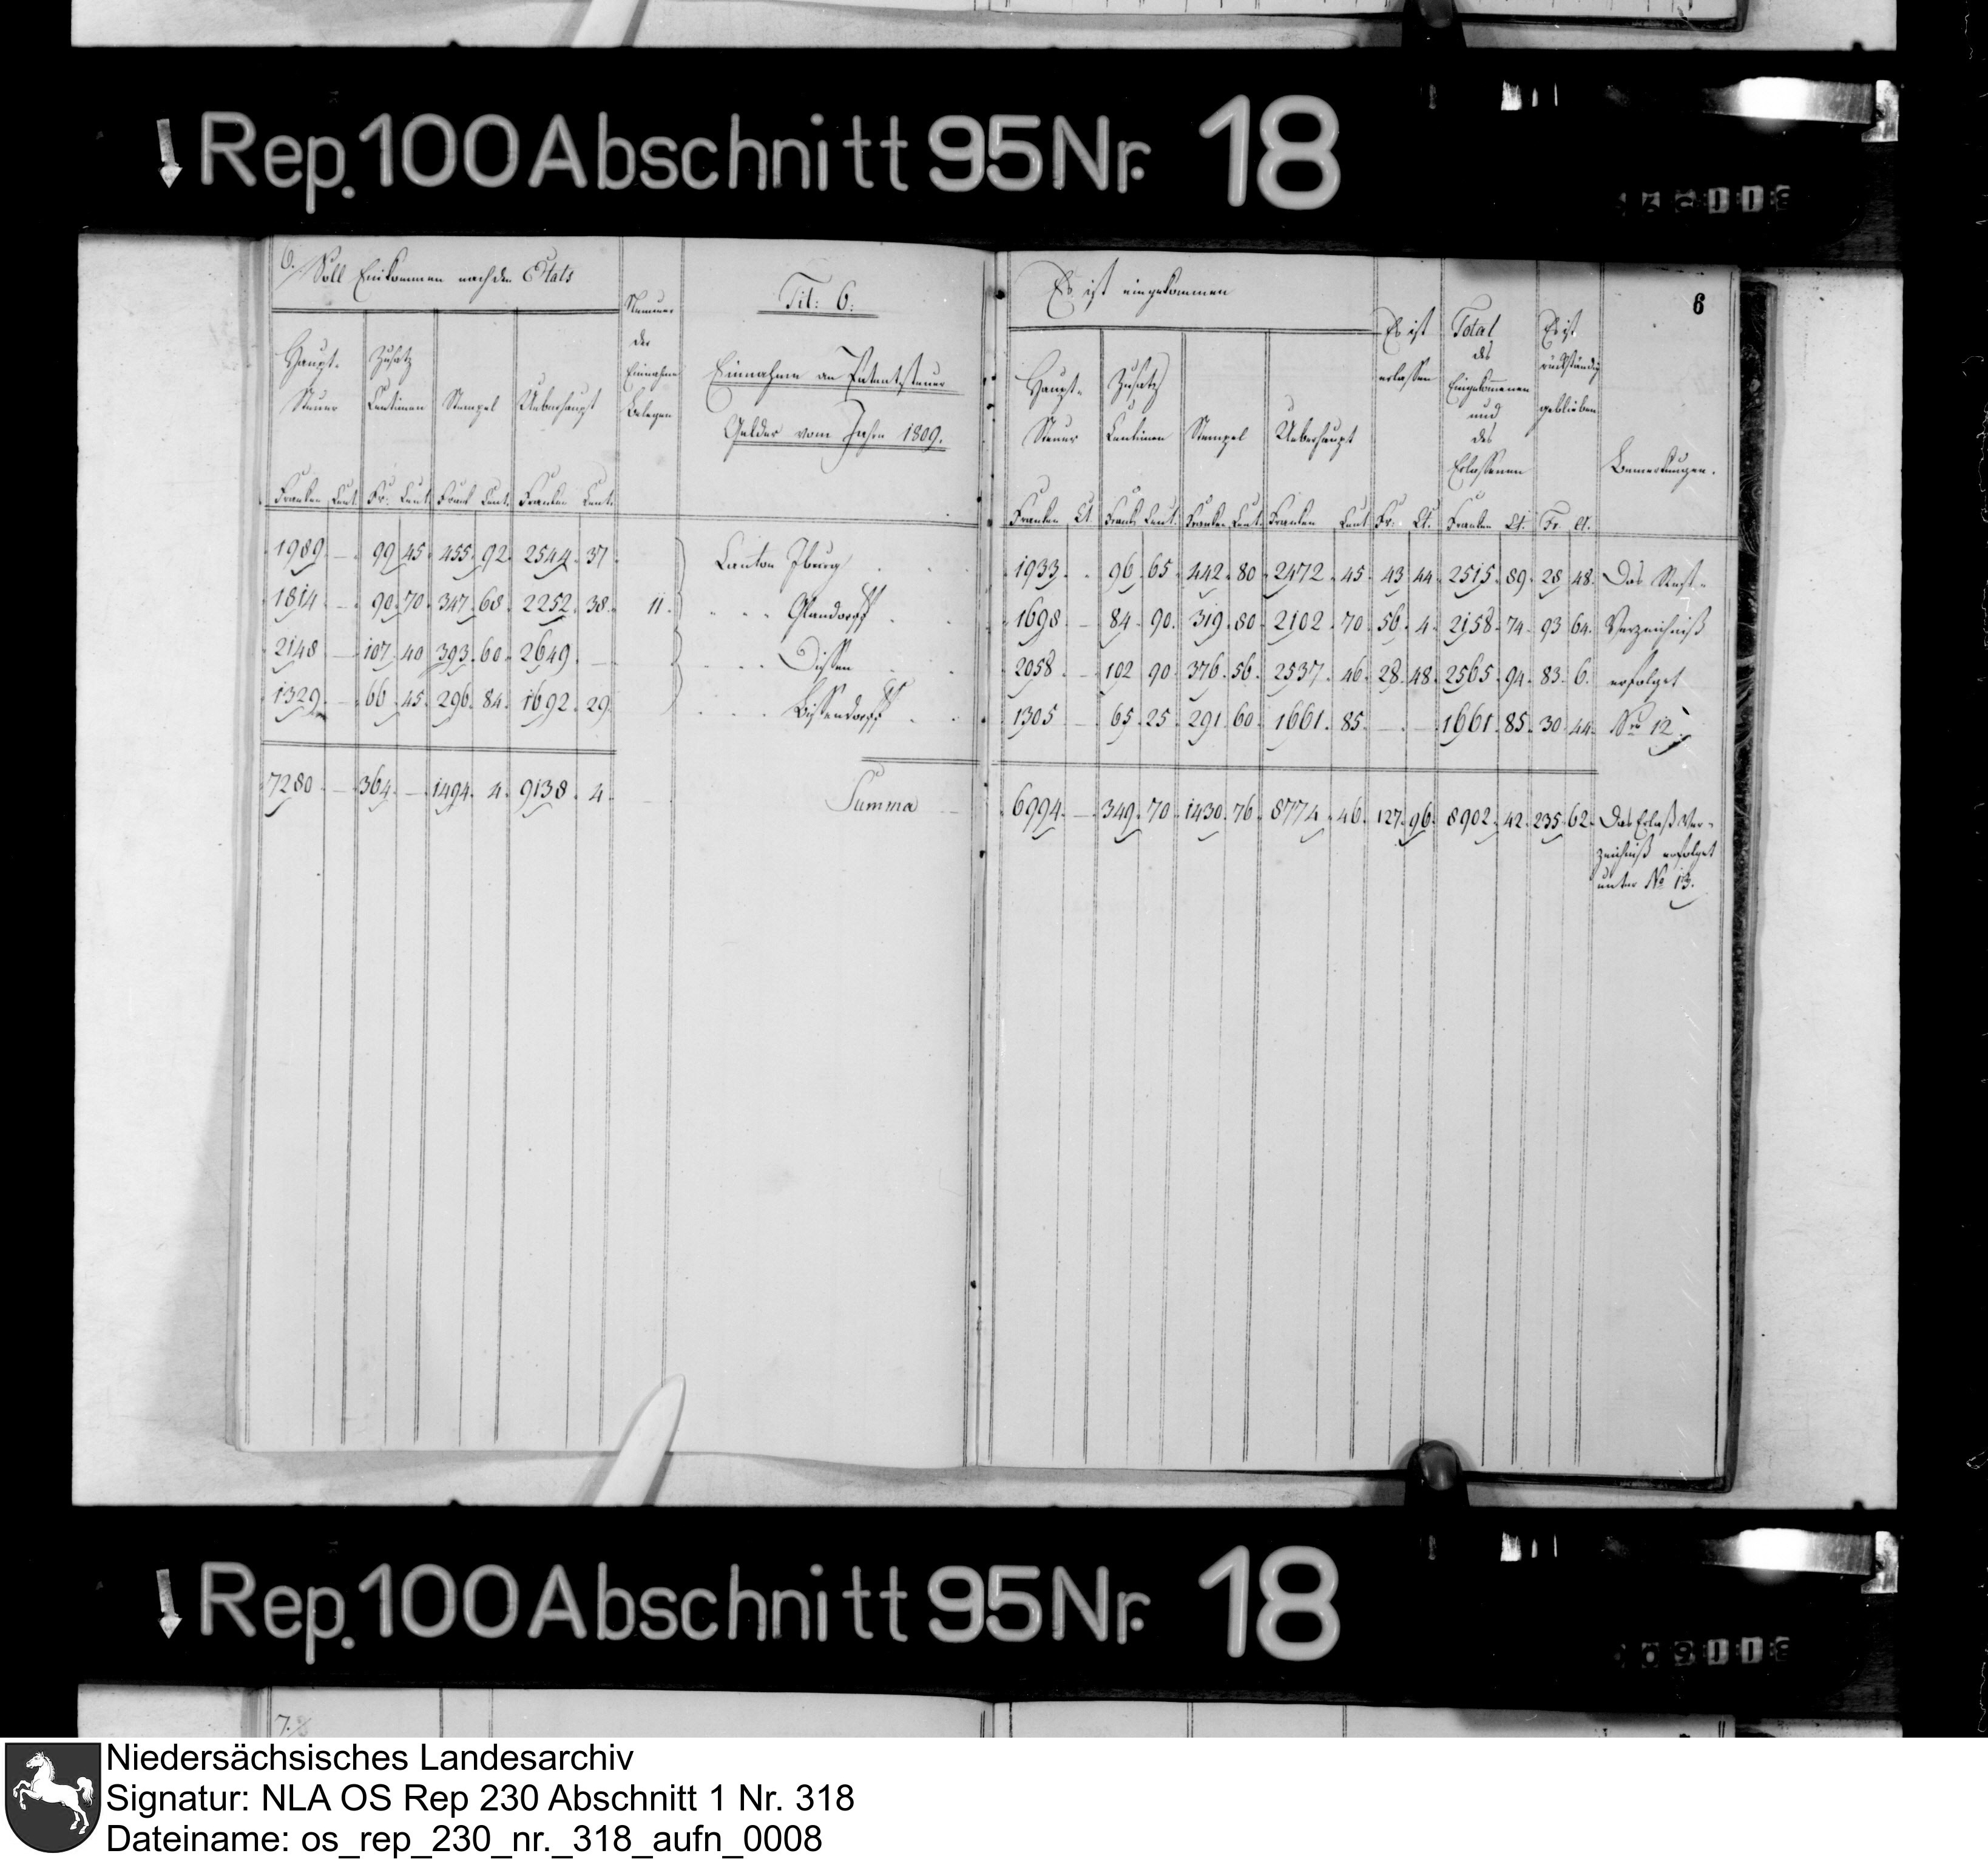 Rep. 100 Abschnitt 95 Nr. 18
6. Soll Einkommen nach den Etats
Haupt-
Steuer
Zusatz
Centimen
Stempel
Ueberhaupt
Nummer
der
Einnahme
Belegen
Tit: 6:
Einnahme an Patentsteuer
Gelder vom Jahre 1809.
Franken Cent. Fr: Cent. Frank Cent. Franken Cent.
1989. — 99 45. 455. 92. 2544. 37.
1814 — 90. 70. 347. 68. 2252. 38.
2148 — 107. 40 393. 60. 2649. —
1329. — 66. 45. 296. 84. 1692. 29.
7280 — 364. — 1494. 4. 9138. 4.
11.
Canton Iburg
" " " Glandorff
" " " Dissen
" " " Bissendorff
Summa
6
Es ist eingekommen
Haupt-
Steuer
Zusatz
Centimen
Stempel
Ueberhaupt
Es ist
erlassen
Total
des
Eingekommenen
und
des
Erlassenen
Es ist
rückständig
geblieben
Bemerkungen.
Franken Ct Frank Cent. Franken Cent. Franken Cent Fr: Ct. Franken Ct. Fr. Ct.
1933. . 96. 65. 442. 80. 2472. 45. 43. 44. 2515. 89. 28. 48. Das Rest-
1698 — 84. 90. 319. 80. 2102. 70. 56. 4. 2158. 74. 93 64. Verzeichniß
2058. — 102 90. 376. 56. 2537. 46. 28. 48. 2565. 94. 83. 6. erfolget
1305 — 65. 25. 291. 60. 1661. 85. — — 1661. 85. 30. 44. No 12.
6994. — 349. 70. 1430. 76. 8774. 46. 127. 96. 8902. 42. 235. 62. Das Erlaß Ver-
zeichniß erfolget
unter No 13.
Rep. 100 Abschnitt 95 Nr. 18
7.
Niedersächsisches Landesarchiv
Signatur: NLA OS Rep 230 Abschnitt 1 Nr. 318
Dateiname: os_rep_230_nr._318_aufn_0008